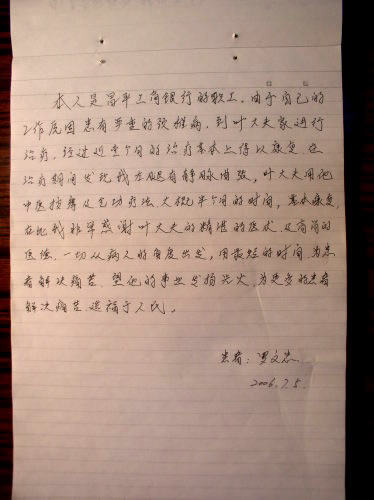 本人是昌平工商银行的职工。由于自己的
工作原因患有严重的颈椎病，到叶大夫家进行
治疗，经过近半个月的治疗基本上得以康复，在
治疗期间发现我左腿有静脉曲张，叶大夫用他
中医按摩及气功疗法，大概半个月的时间，基本康复，
在此我非常感谢叶大夫的精湛的医术，及高尚的
医德，一切从病人的角度出发，用最短的时间为患
者解决痛苦，望他的事业发扬光大，为更多的患者
解决痛苦造福于人民。
患者：罗文忠
2006.7.5.